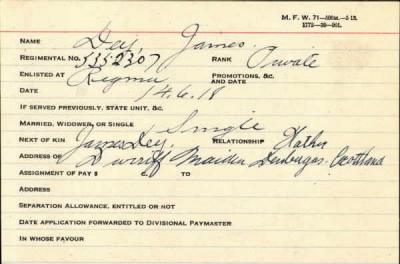 M. F. W. 71—500M.—5 18.
1772—39—901.
NAME Dey, James. 
REGIMENTAL NO. RANK Private
ENLISTED AT Regina PROMOTIONS, &C. AND DATE
DATE 14.6.18
IF SERVED PREVIOUSLY, STATE UNIT, &C.
MARRIED, WIDOWER, OR SINGLE Single
NEXT OF KIN James Dey. RELATIONSHIP Father
ADDRESS OF Maiden Scotland
ASSIGNMENT OF PAY $ C. TO
ADDRESS
SEPARATION ALLOWANCE, ENTITLED OR NOT
DATE APPLICATION FORWARDED TO DIVISIONAL PAYMASTER
IN WHOSE FAVOUR